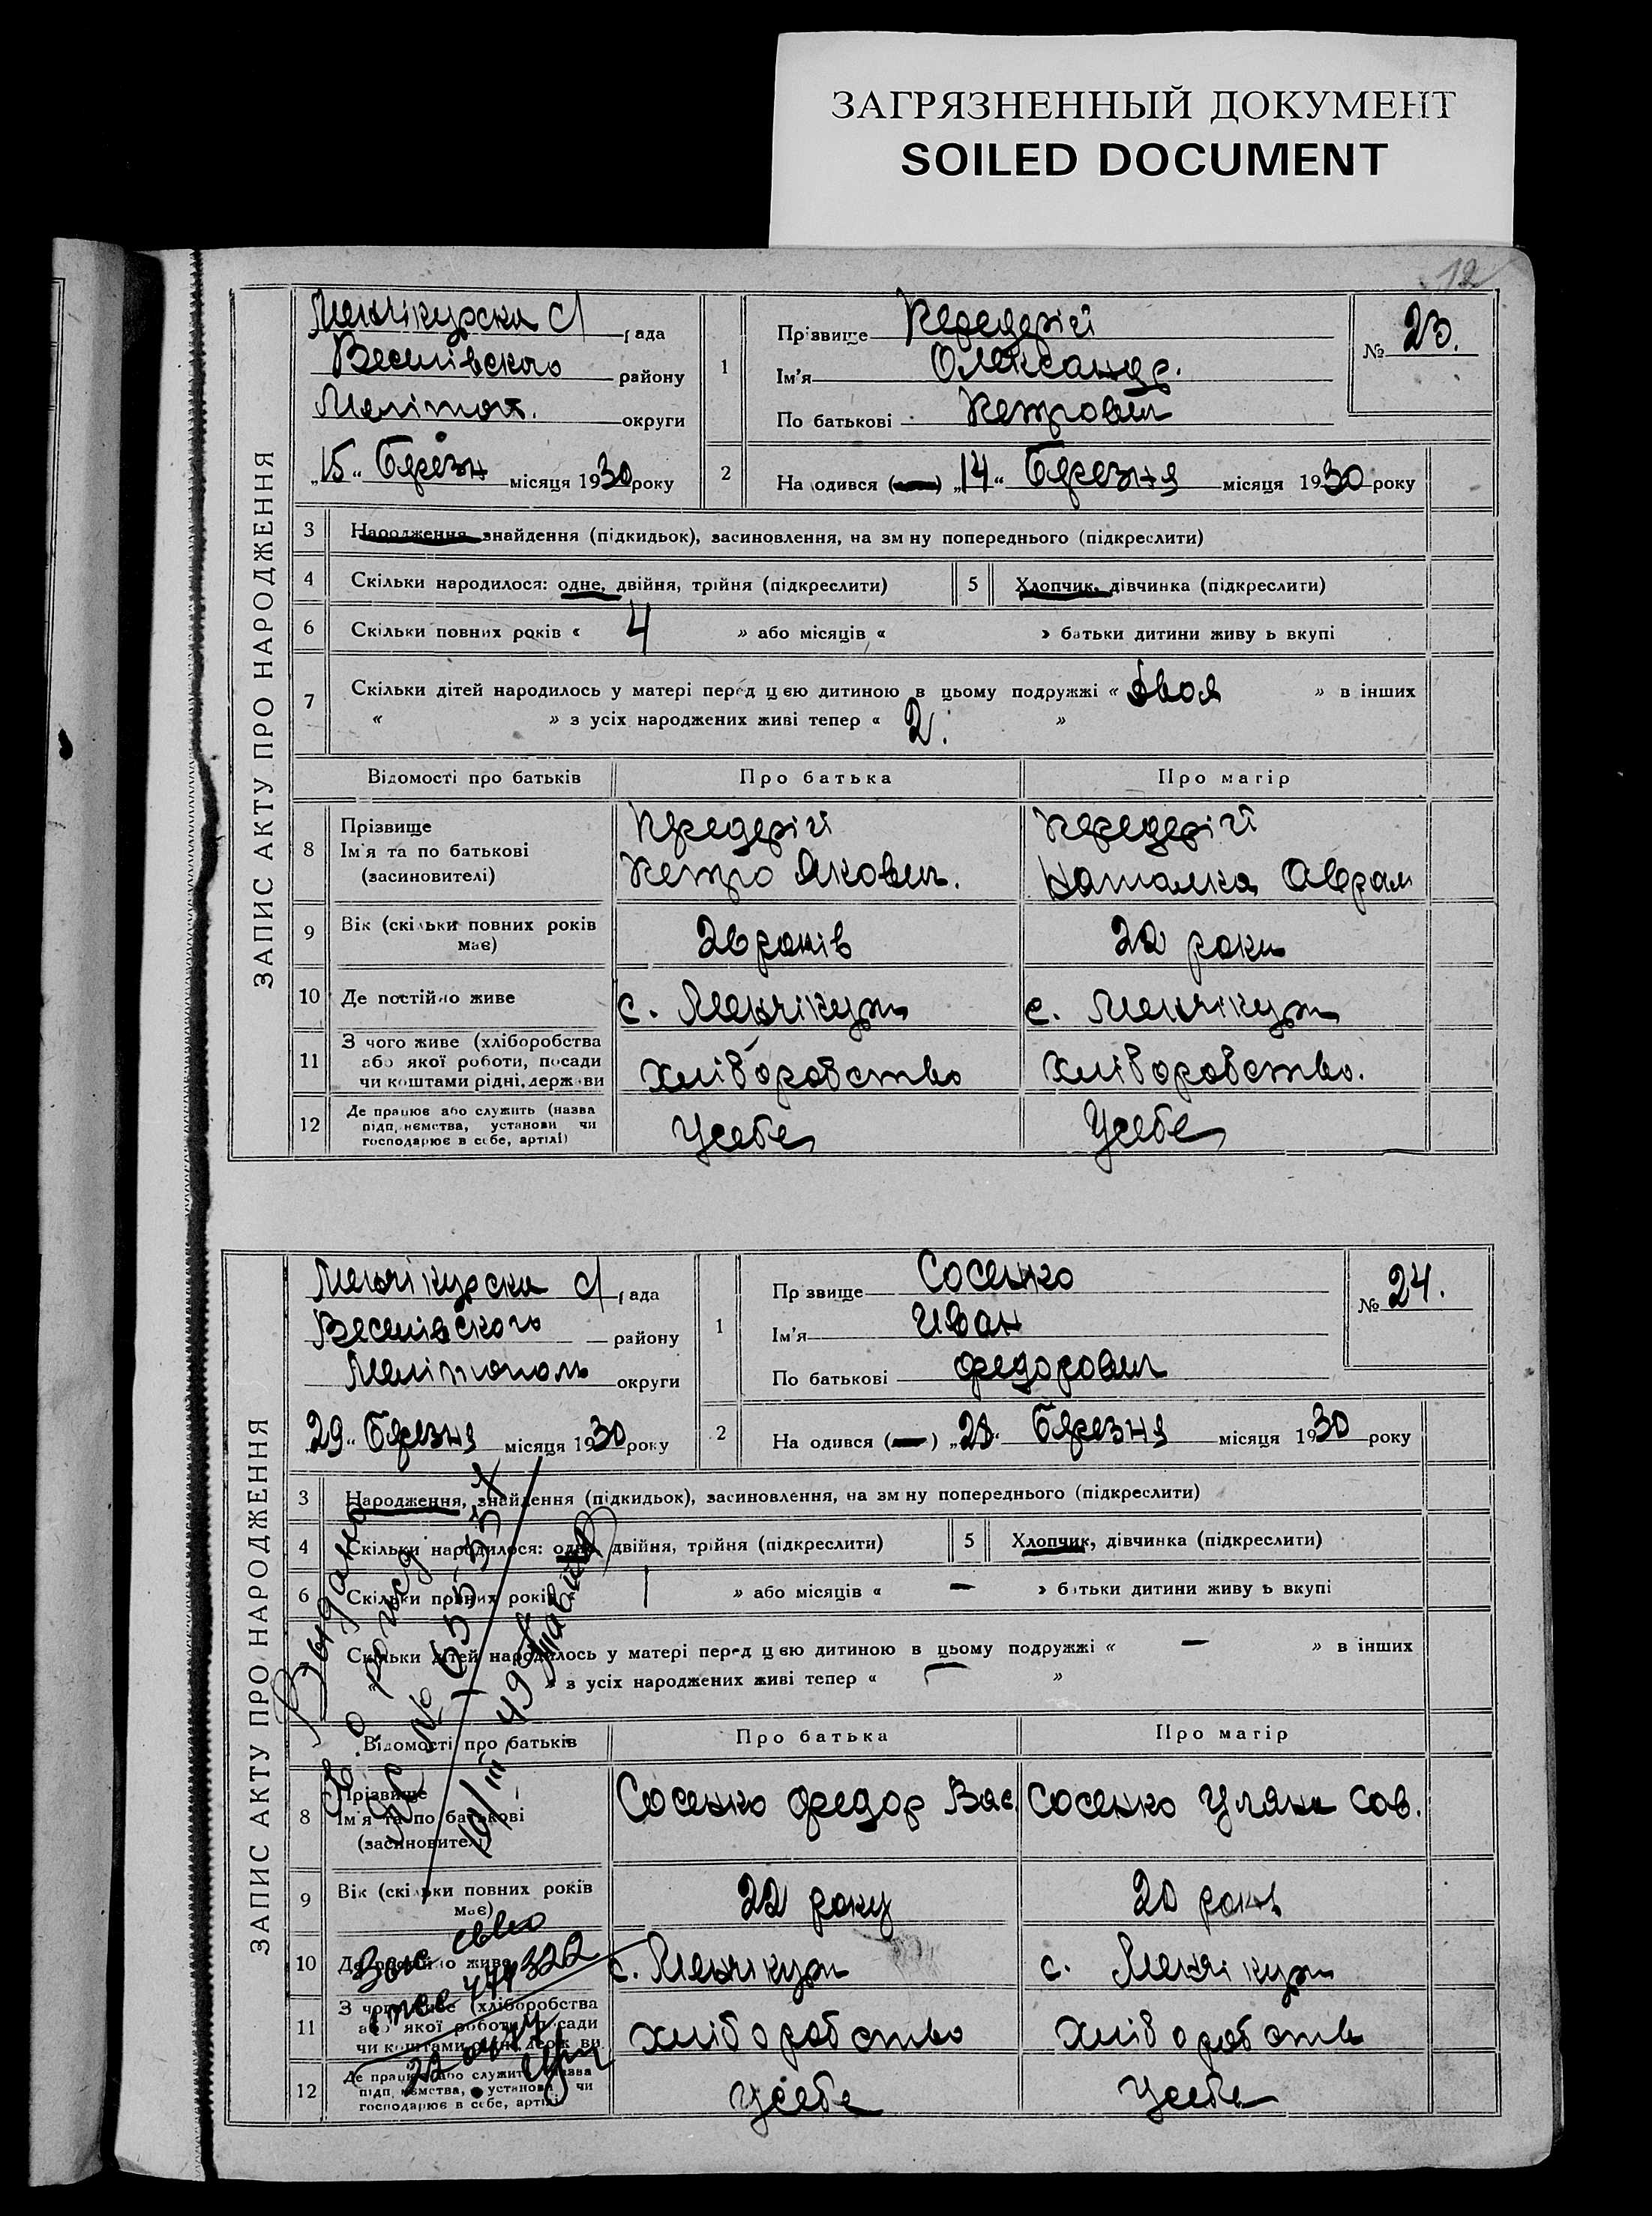 ЗАГРЯЗНЕННЫЙ ДОКУМЕНТ
SOILED DOCUMENT
12
ЗАПИС АКТУ ПРО НАРОДЖЕННЯ
Менчікурска с/ рада
Веселівского району
Мелітоп. округи
„15“ Березн місяця 1930 року
1
Прізвище Передерій
Ім'я Олександр.
По батькові Петрович
№ 23.
2
На одився ( ) „14“ Березня місяця 1930 року
3 Народження, знайдення (підкидьок), засиновлення, на зм ну попереднього (підкреслити)
4 Скільки народилося: одне, двійня, трійня (підкреслити)
5 Хлопчик, дівчинка (підкреслити)
6 Скільки повних років « 4 » або місяців « » батьки дитини живу ь вкупі
7 Скільки дітей народилось у матері перед цією дитиною в цьому подружжі « двоя » в інших
« » з усіх народжених живі тепер « 2. »
Відомості про батьків Про батька Про матір
8 Прізвище
Ім'я та по батькові
(засиновителі)
Передерій
Петро Якович.
Передерій
Наталка Аврам
9 Вік (скільки повних років має)
26 років
22 роки
10 Де постійно живе
с. Менчікури
с. Менчікури
11 З чого живе (хліборобства
або якої роботи, посади
чи коштами рідні, держави
Хліборобство
Хліборобство.
12 Де працює або служить (назва
підп. ємства, установи чи
господарює в себе, артілі)
Усебе
Усебе
ЗАПИС АКТУ ПРО НАРОДЖЕННЯ
Менчікурска с/ рада
Веселівского району
Мелітополь округи
29“ Березня місяця 1930 року
1
Пр звище Сосенко
Ім'я Иван
По батькові Федорович
№ 24.
2
На одився ( ) „28“ Березня місяця 1930 року
3 Народження, знайдення (підкидьок), засиновлення, на зм ну попереднього (підкреслити)
4 Скільки народилося: одне, двійня, трійня (підкреслити)
5 Хлопчик, дівчинка (підкреслити)
6 Скільки повних років 1 » або місяців « — » батьки дитини живу ь вкупі
Скільки дітей народилось у матері перед цією дитиною в цьому подружжі « — » в інших
» з усіх народжених живі тепер « — »
Відомості про батьків Про батька Про матір
8 Прізвище
Ім'я та по батькові
(засиновителі)
Сосенко Федор Вас
Сосенко Уляна Сав.
9 Вік (скільки повних років має)
22 року
20 років
10 Де постійно живе
с. Менчікури
с. Менчікури
11 З чого живе (хліборобства
або якої роботи, посади
чи коштами рідні, держ ви
хліборобство
Хліборобств
12 Де працює або служить (назва
підп. ємства, установи чи
господарює в себе, артілі
Усебе
Усебе
Выдано